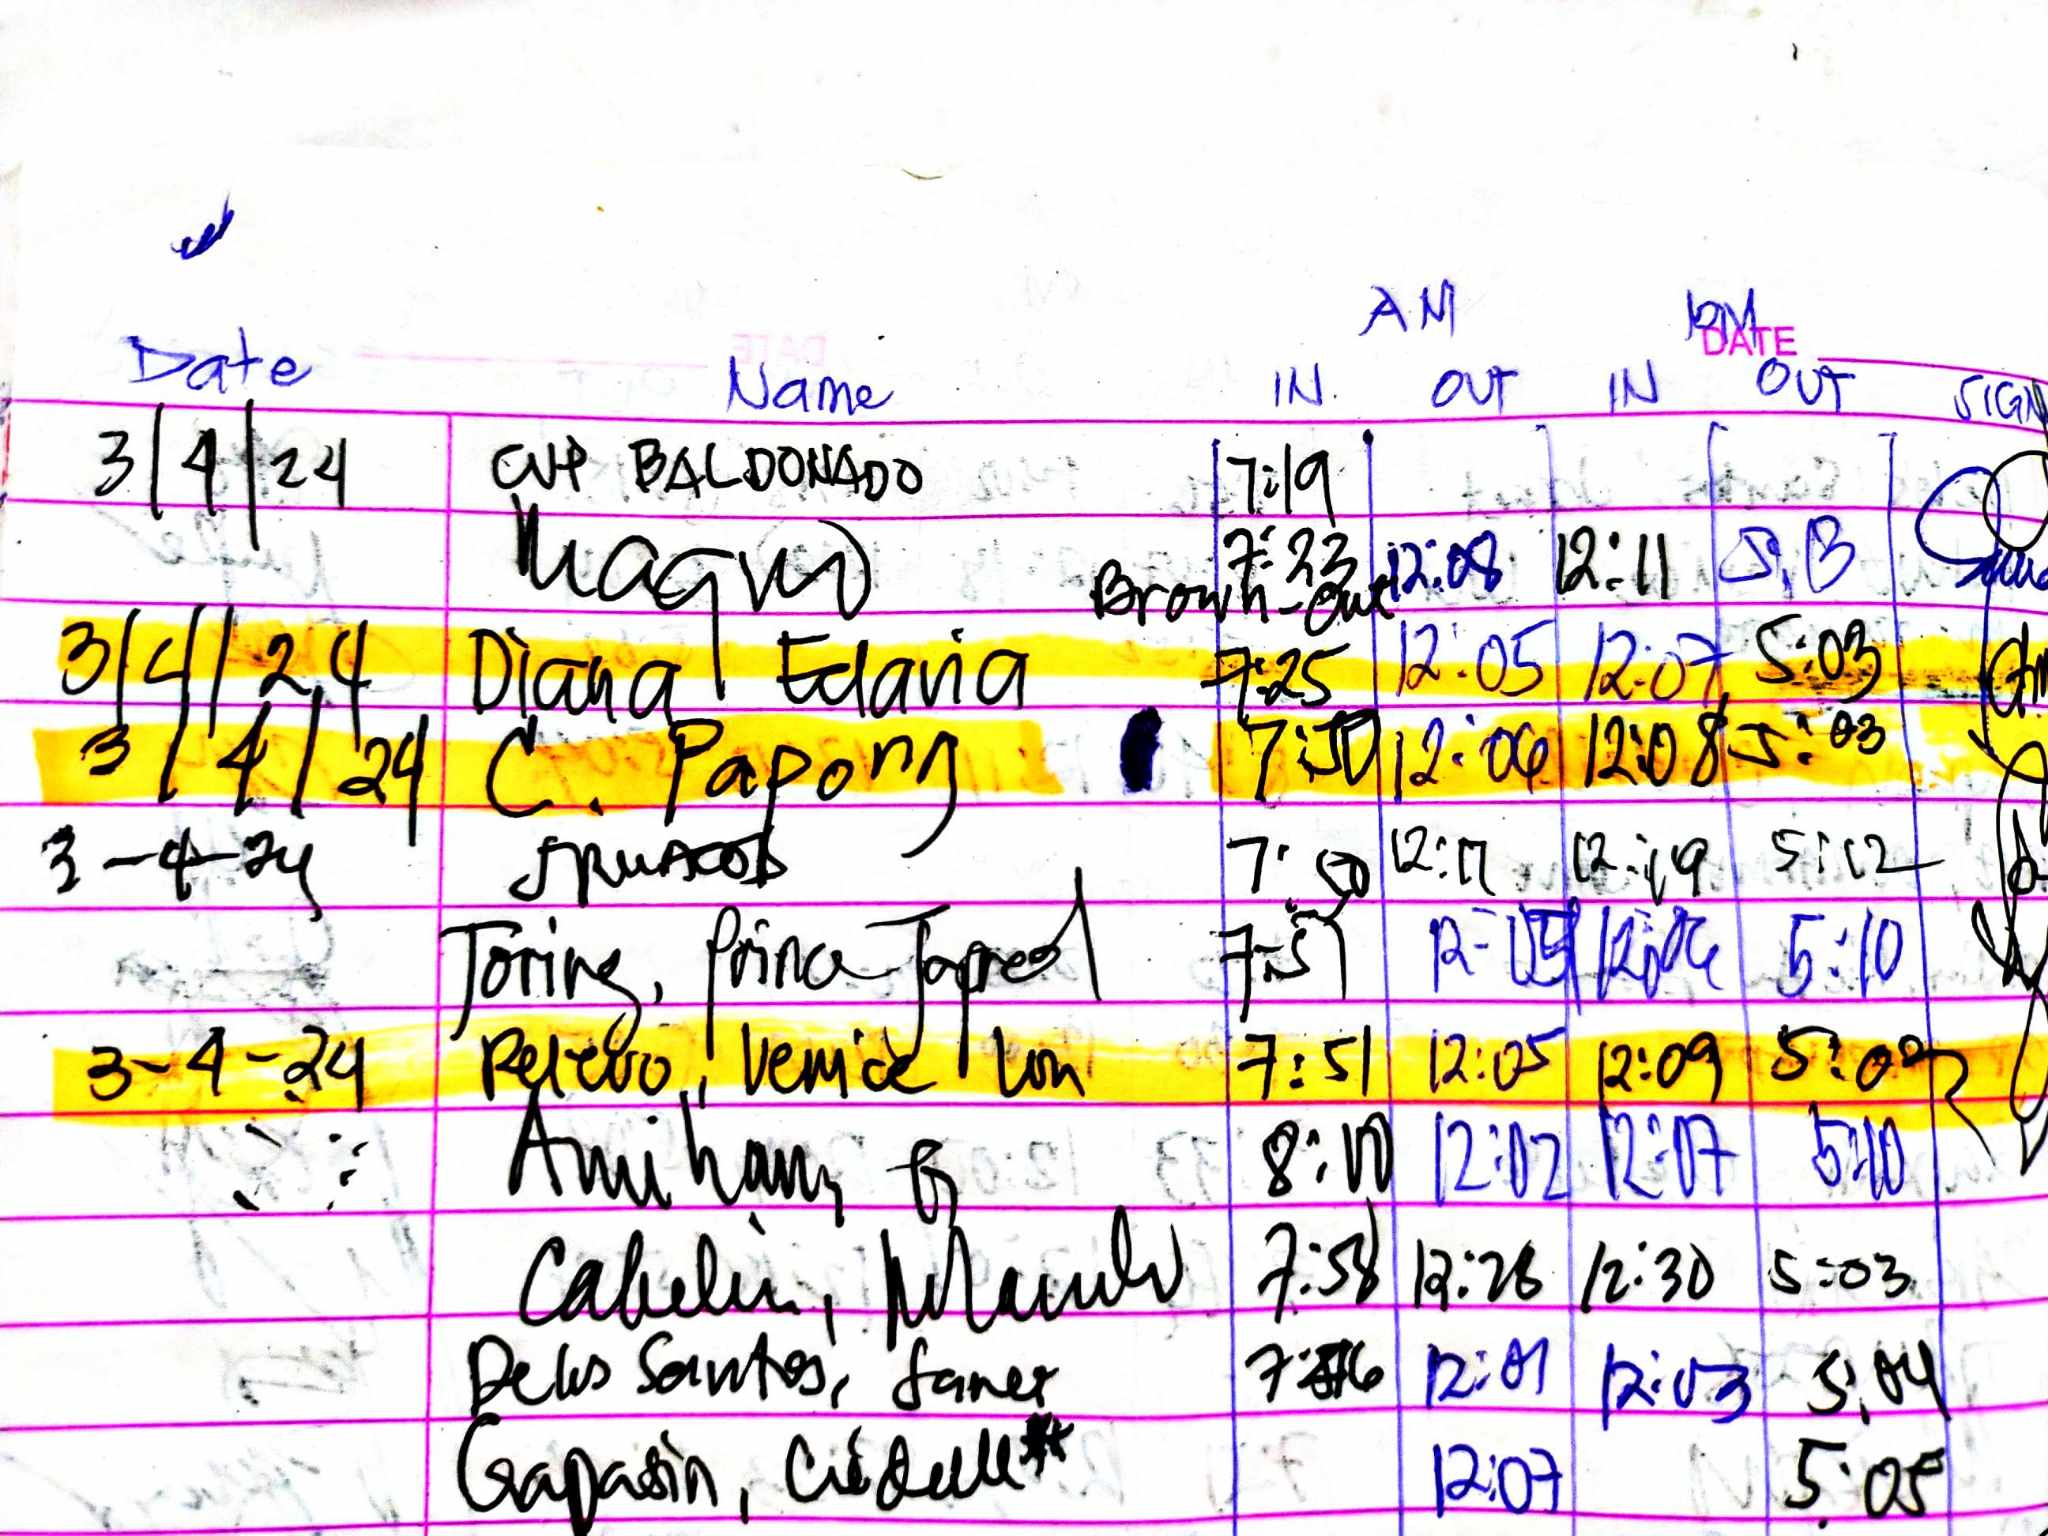 AM PM
DATE
Date Name IN OUT IN OUT SIGN
3/4/24 CVP BALDONADO 7:19
7:23 12:08 12:11 5:13
Brown-out
3/4/24 Diana Edaria 7:25 12:05 12:07 5:03
3/4/24 C. Papong 7:50 12:06 12:08 5:03
3-4-24 7:50 12:17 12:19 5:12
Toring, Prince 7:51 12:05 12:06 5:10
3-4-24 Vernice 7:51 12:05 12:09
Amihan, 8:10 12:02 12:07 5:10
7:58 12:28 12:30 5:03
Delos Santos, Janet 12:01 12:03 5:04
Gapasin, 12:07 5:05